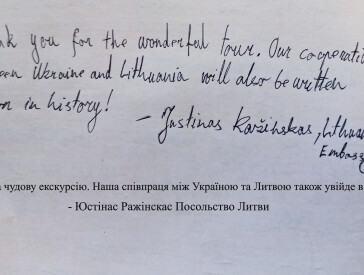 ak you for the wonderful tour. Our cooperati
een Ukraine and Lithuania will also be written
on in history!
- Justinas Kažinskas, Lithua
Embass
чудову екскурсію. Наша співпраця між Україною та Литвою також увійде в
- Юстінас Ражінскас Посольство Литви